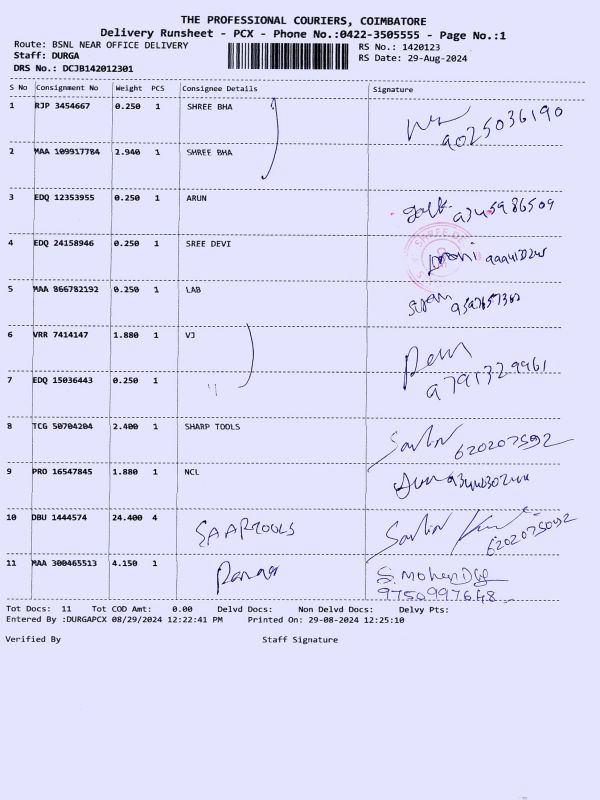 THE PROFESSIONAL COURIERS, COIMBATORE
Delivery Runsheet - PCX - Phone No.:0422-3505555 - Page No.:1
Route: BSNL NEAR OFFICE DELIVERY
RS No.: 1420123
Staff: DURGA
RS Date: 29-Aug-2024
DRS No.: DCJB142012301
S No Consignment No Weight PCS Consignee Details Signature
1 RJP 3454667 0.250 1 SHREE BHA
9025036190
2 MAA 109917784 2.940 1 SHREE BHA
3 EDQ 12353955 0.250 1 ARUN
4 EDQ 24158946 0.250 1 SREE DEVI
5 MAA 866782192 0.250 1 LAB
6 VRR 7414147 1.880 1 VJ
9791329961
7 EDQ 15036443 0.250 1
8 TCG 50704204 2.400 1 SHARP TOOLS
620207592
9 PRO 16547845 1.880 1 NCL
10 DBU 1444574 24.400 4 SAARTOOLS
11 MAA 300465513 4.150 1
9750997648
Tot Docs: 11 Tot COD Amt: 0.00 Delvd Docs: Non Delvd Docs: Delvy Pts:
Entered By :DURGAPCX 08/29/2024 12:22:41 PM Printed On: 29-08-2024 12:25:10
Verified By Staff Signature